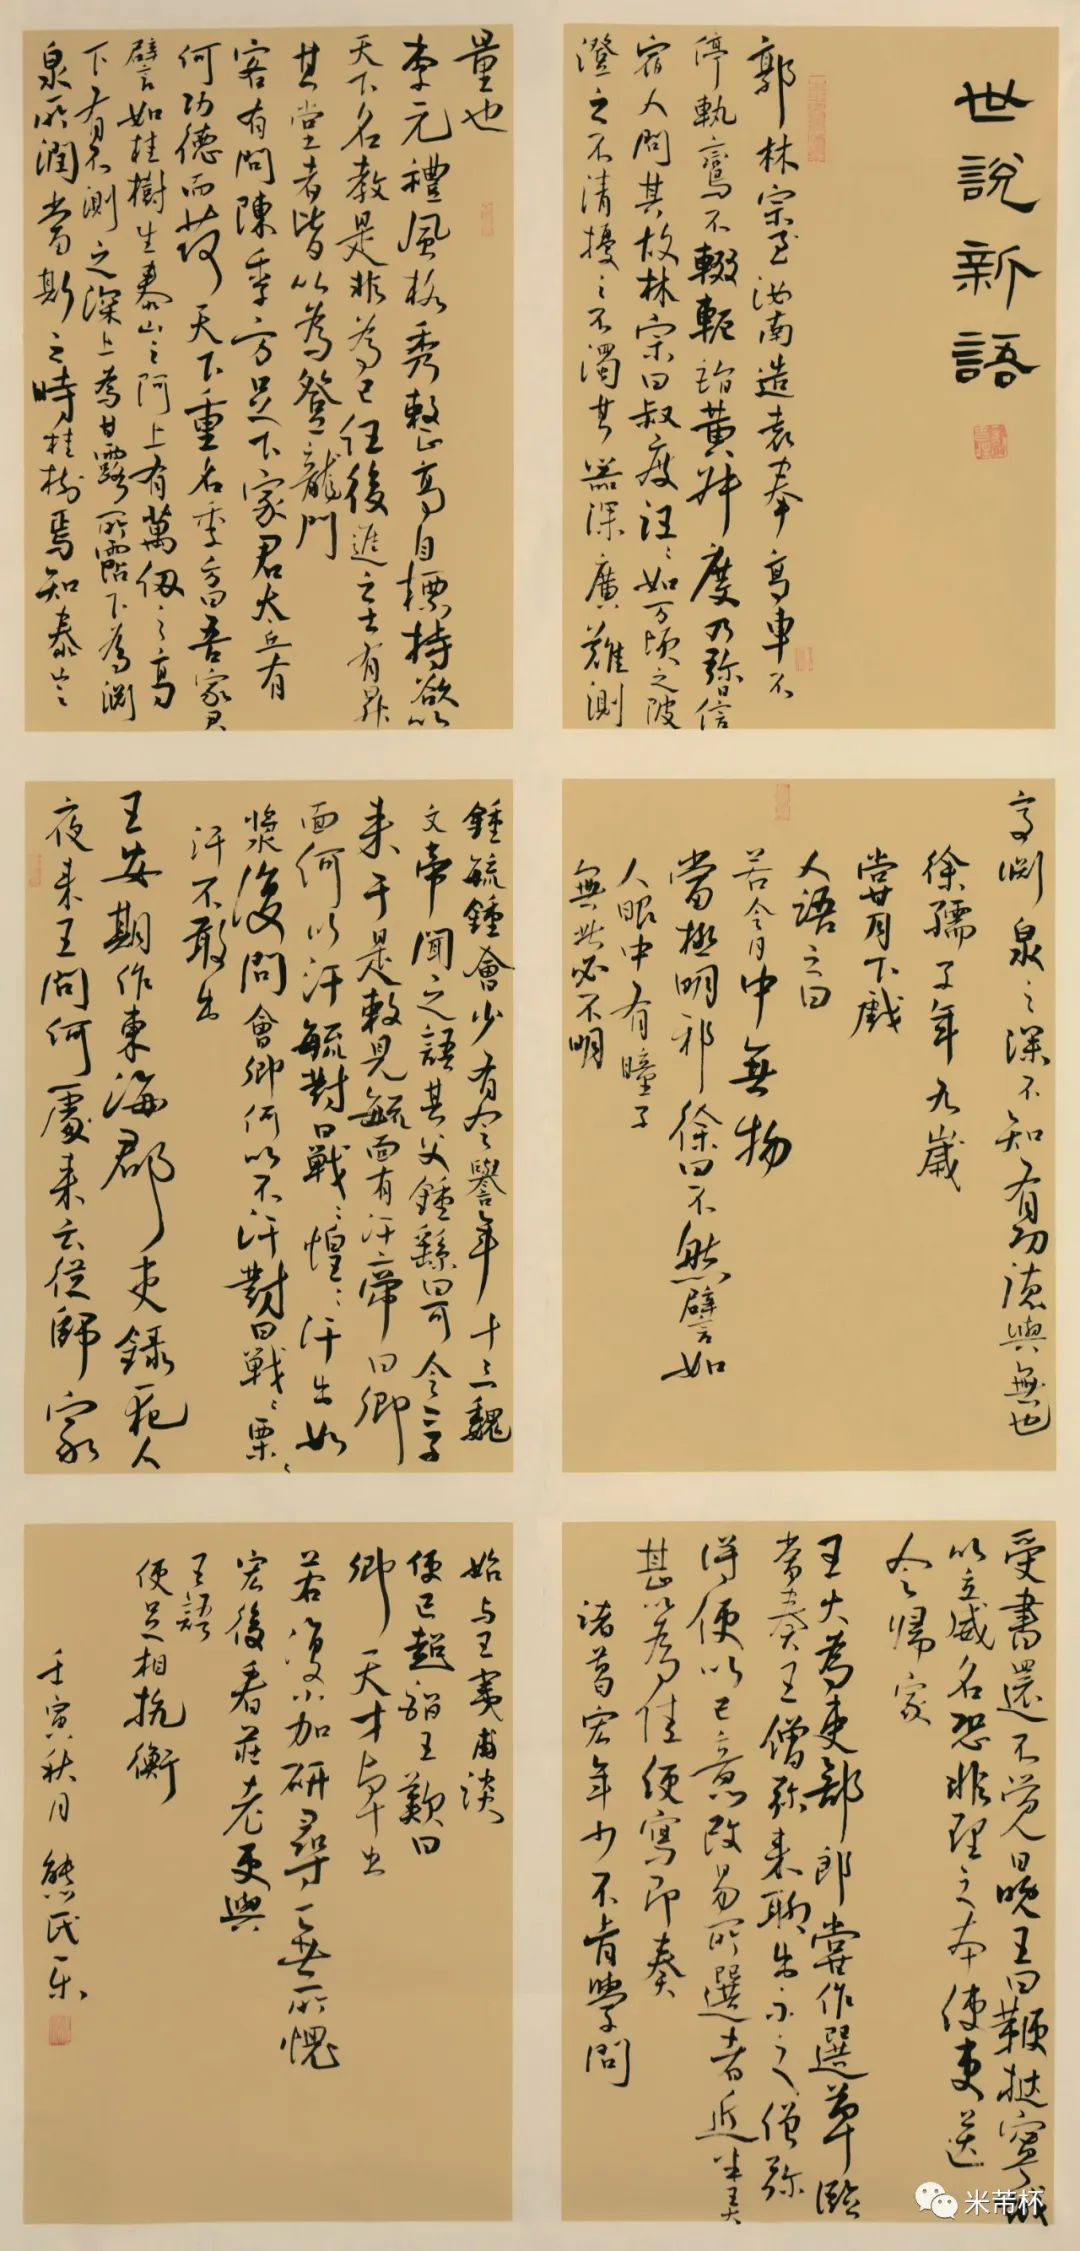 世說新語
郭林宗至汝南造袁奉高車不
停軌鸞不輟軛詣黃叔度乃彌日信
宿人問其故林宗曰叔度汪〻如万頃之陂
澄之不清擾之不濁其器深廣難測
量也
李元禮風格秀整高自標持欲以
天下名教是非為己任後進之士有昇
其堂者皆以為登龍門
客有問陳季方足下家君太丘有
何功德而荷天下重名季方曰吾家君
譬如桂樹生泰山之阿上有萬仞之高
下有不測之深上為甘露所霑下為淵
泉所潤當斯之時桂樹焉知泰山之
高淵泉之深不知有功德與無也
徐孺子年九歲
嘗月下戲
人語之曰
若令月中無物
當極明邪徐曰不然譬如
人眼中有瞳子
無此必不明
鍾毓鍾會少有令譽年十三魏
文帝聞之語其父鍾繇曰可令二子
来于是敕見毓面有汗帝曰卿
面何以汗毓對曰戰〻惶〻汗出如
漿復問會卿何以不汗對曰戰〻栗〻
汗不敢出
王安期作東海郡吏錄一犯人
夜来王問何處来云從師家
受書還不覺日晚王曰鞭撻甯越
以立威名恐非理之本使吏送
令歸家
王大為吏部郎嘗作選草臨
當奏王僧彌来聊出示之僧彌
得便以己意改易所選者近半王大
甚以為佳便寫即奏
諸葛宏年少不肯學問
始与王夷甫談
便已超詣王歎曰
卿天才卓出
若復小加研尋一無所愧
宏後看莊老更與
王語
便足相抗衡
壬寅秋月 熊民樂
米芾杯